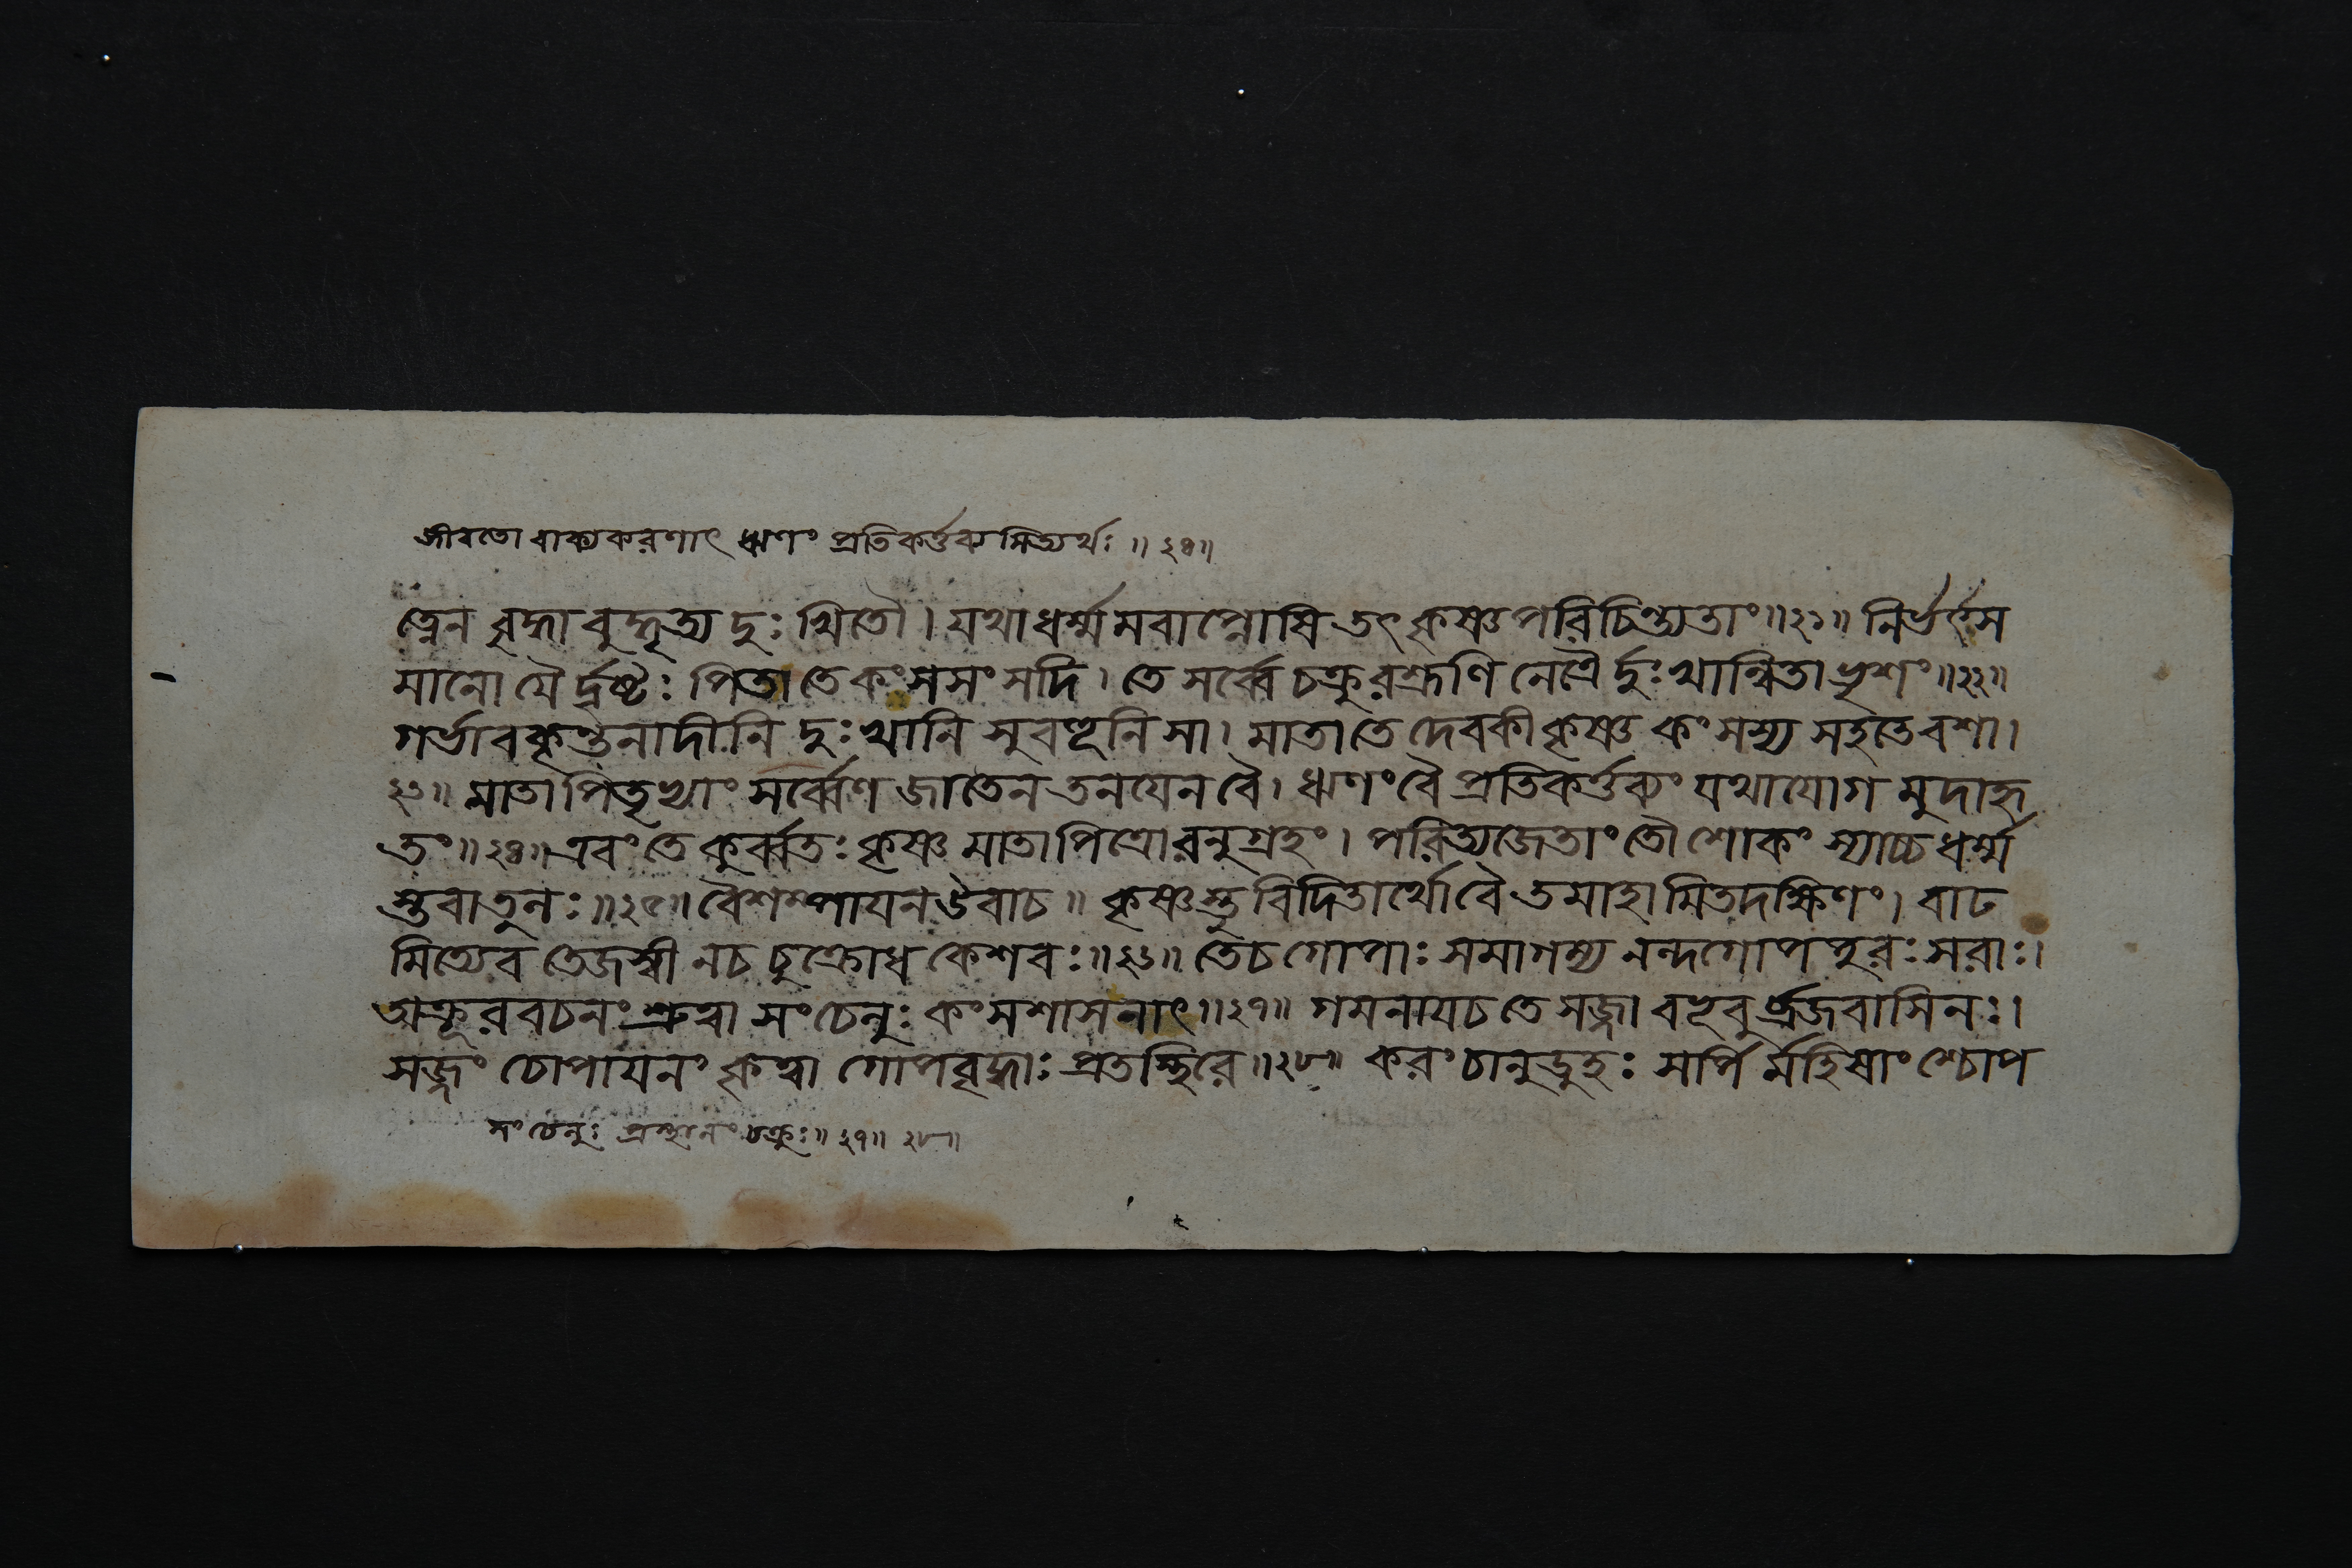 জীবতো বাক্যকরণাৎ ঋণং প্রতিকর্ত্তব্যমিত্যর্থঃ ॥ ২৪॥
ত্নেন বৃদ্ধাবুদ্ধৃত্য দুঃখিতৌ । যথাধর্ম্মমবাপ্নোষি তৎ কৃষ্ণ পরিচিন্ত্যতাং ॥২১॥ নির্ভর্ৎস
মানো যৈর্দৃষ্টঃ পিতা তে কংসসংসদি । তে সর্ব্বে চক্রুরশ্রুণি নেত্রৈর্দুঃখান্বিতা ভৃশং ॥২২॥
গর্ভাবকৃন্তনাদীনি দুঃখানি সুবহূনি সা । মাতা তে দেবকী কৃষ্ণ কংসস্য সহতেবশা ।
২৩॥ মাতাপিতৃভ্যাং সর্ব্বেণ জাতেন তনয়েন বৈ । ঋণং বৈ প্রতিকর্ত্তব্যং যথাযোগমুদাহৃ
তং ॥২৪॥ এবং তে কুর্ব্বতঃ কৃষ্ণ মাতাপিত্রোরনুগ্রহং । পরিত্যজেতাং তৌ শোকং স্যাচ্চ ধর্ম্ম
স্তবাতুলঃ ॥২৫॥ বৈশম্পায়ন উবাচ ॥ কৃষ্ণস্তু বিদিতার্থো বৈ তমাহামিতদক্ষিণং । বাঢ
মিত্যেব তেজস্বী নচ চুক্রোধ কেশবঃ ॥২৬॥ তেচ গোপাঃ সমাগম্য নন্দগোপপুরঃসরাঃ ।
অক্রূরবচনং শ্রুত্বা সংচেলুঃ কংসশাসনাৎ ॥২৭॥ গমনায়চ তে সজ্জা বভূবুর্ব্রজবাসিনঃ ।
সজ্জং চোপায়নং কৃত্বা গোপবৃদ্ধাঃ প্রতস্থিরে ॥২৮॥ করং চানুডুহঃ সর্পির্মহিষাংশ্চোপ
সংচেলুঃ প্রস্থানং চক্রুঃ ॥ ২৭॥ ২৮॥